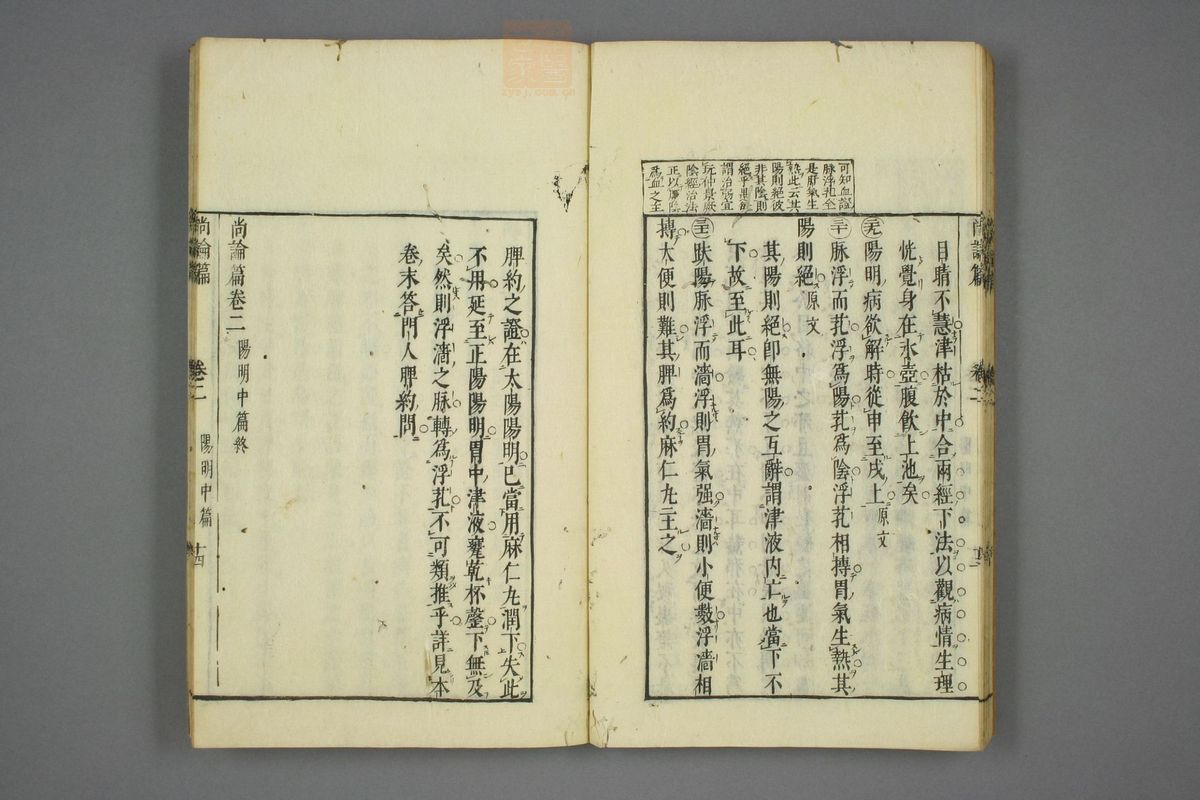 可知血證
脉浮芤全
是肝氣生
熱此云其
陽則絕彼
非其陰則
絕乎里
謂治易宜
玩仲景厥
陰經治法
正以厥陰
爲血之主
目睛不慧津枯於中合兩經下法以觀病情生理
恍覺身在氷壺腹飮上池矣
充陽明病欲解時從申至戌上原文
三十脉浮而芤浮爲陽芤爲陰浮芤相搏胃氣生熱其
陽則絕原文
其陽則絕卽無陽之互辭謂津液內亡也當下不
下故至此耳
三一趺陽脉浮而濇浮則胃氣强濇則小便數浮濇相
搏大便則難其脾爲約麻仁丸主之
尚論篇 卷二 陽明中篇 十四
脾約之證在太陽陽明已當用麻仁丸潤下失此
不用延至正陽陽明胃中津液蹇乾杯罄下無及
矣然則浮濇之脉轉爲浮芤不可類推乎詳見本
卷末答門人脾約問
尚論篇卷二 陽明中篇終
zysj.com.cn